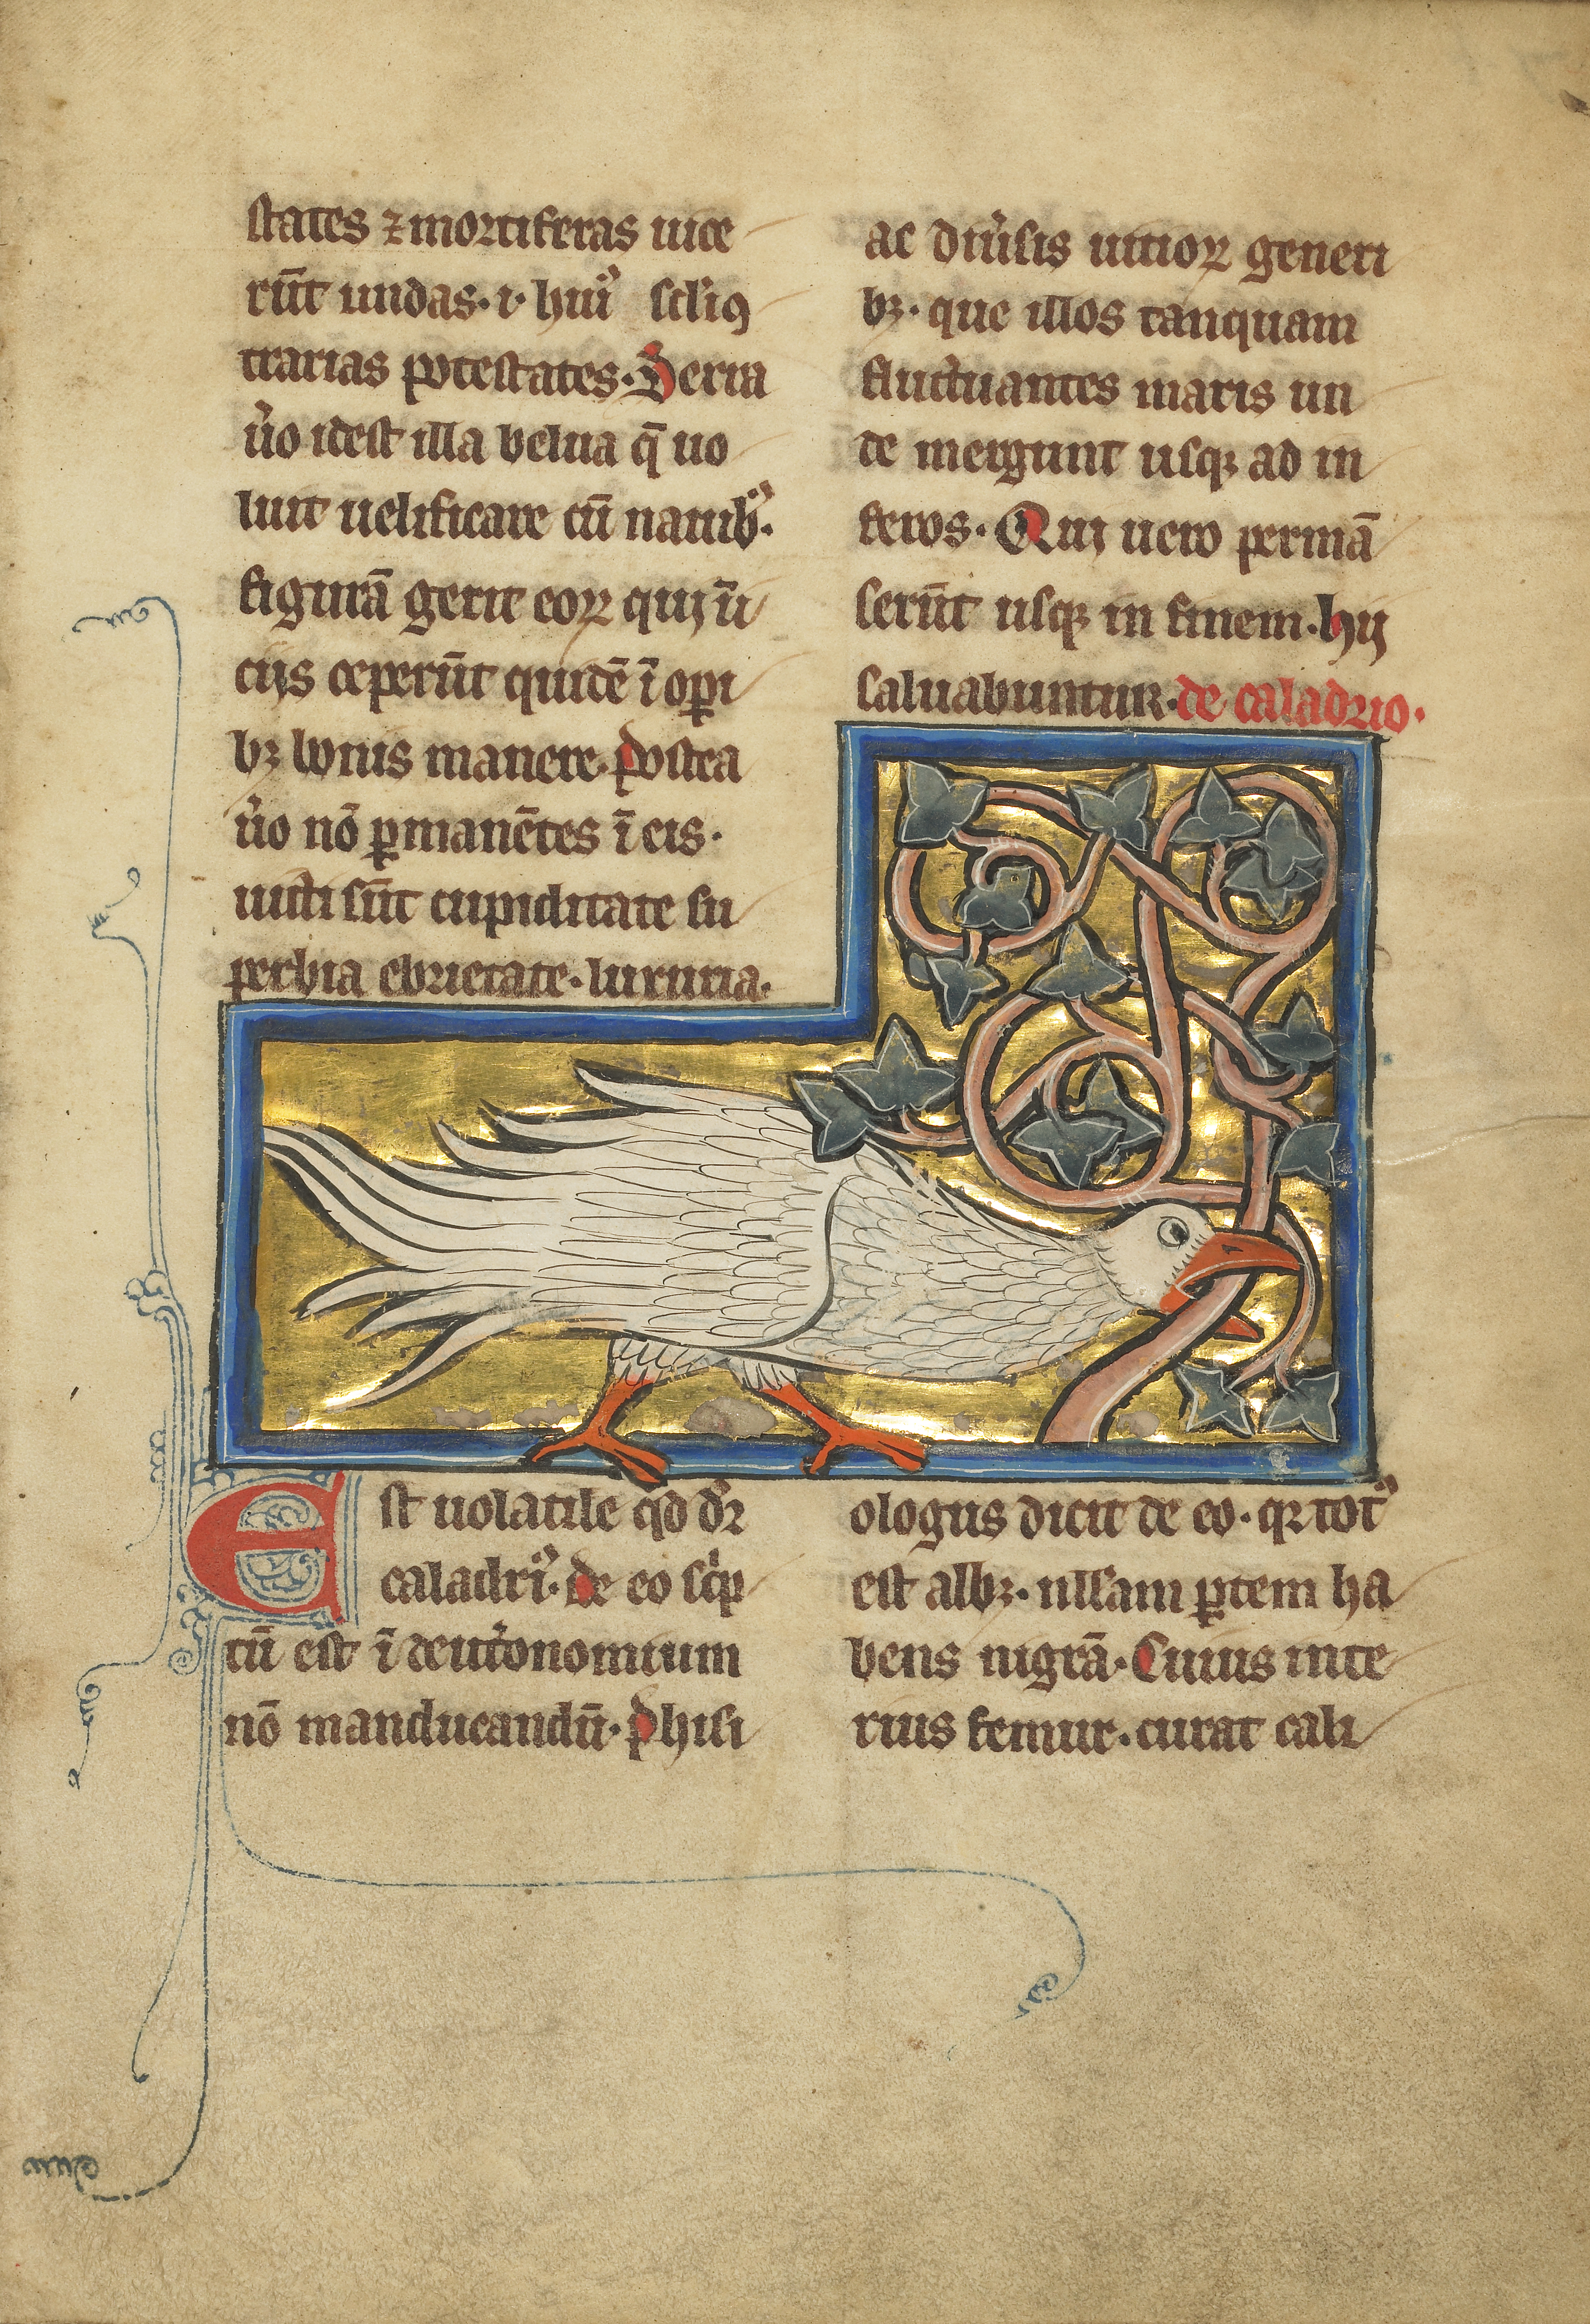 states ⁊ mortiferas uice
rūt undas· i· hui᷒ scłi ꝯ
trarias potestates· Serra
u᷒o idest illa belua q̄ uo
luit uelificare cū nauib᷒·
figurā gerit eoꝝ quij ī
cijs ceperūt quidē ī oꝑi
bꝫ bonis manere· postea
u᷒o nō ꝑmanētes ī eis·
uicti sūt cupiditate su
perbia ebrietate· luxuria·
ac diu᷒sis uitioꝝ generi
bꝫ· que illos tanquam
fluctuantes maris un
de mergunt usqꝫ ad in
feros· Quij uero permā
serūt usqꝫ in finem· hij
saluabuntur· de caladrio·
Est uolatile qd̄ dr̄
caladri᷒· de eo scͥp
tū est ī deut᷒onomium
nō manducandū· phisi
ologus dicit de eo· qꝛ tot᷒
est albꝫ· nllam ꝑtem ha
bens nigrā· Cuius inte
rius femur· curat cali